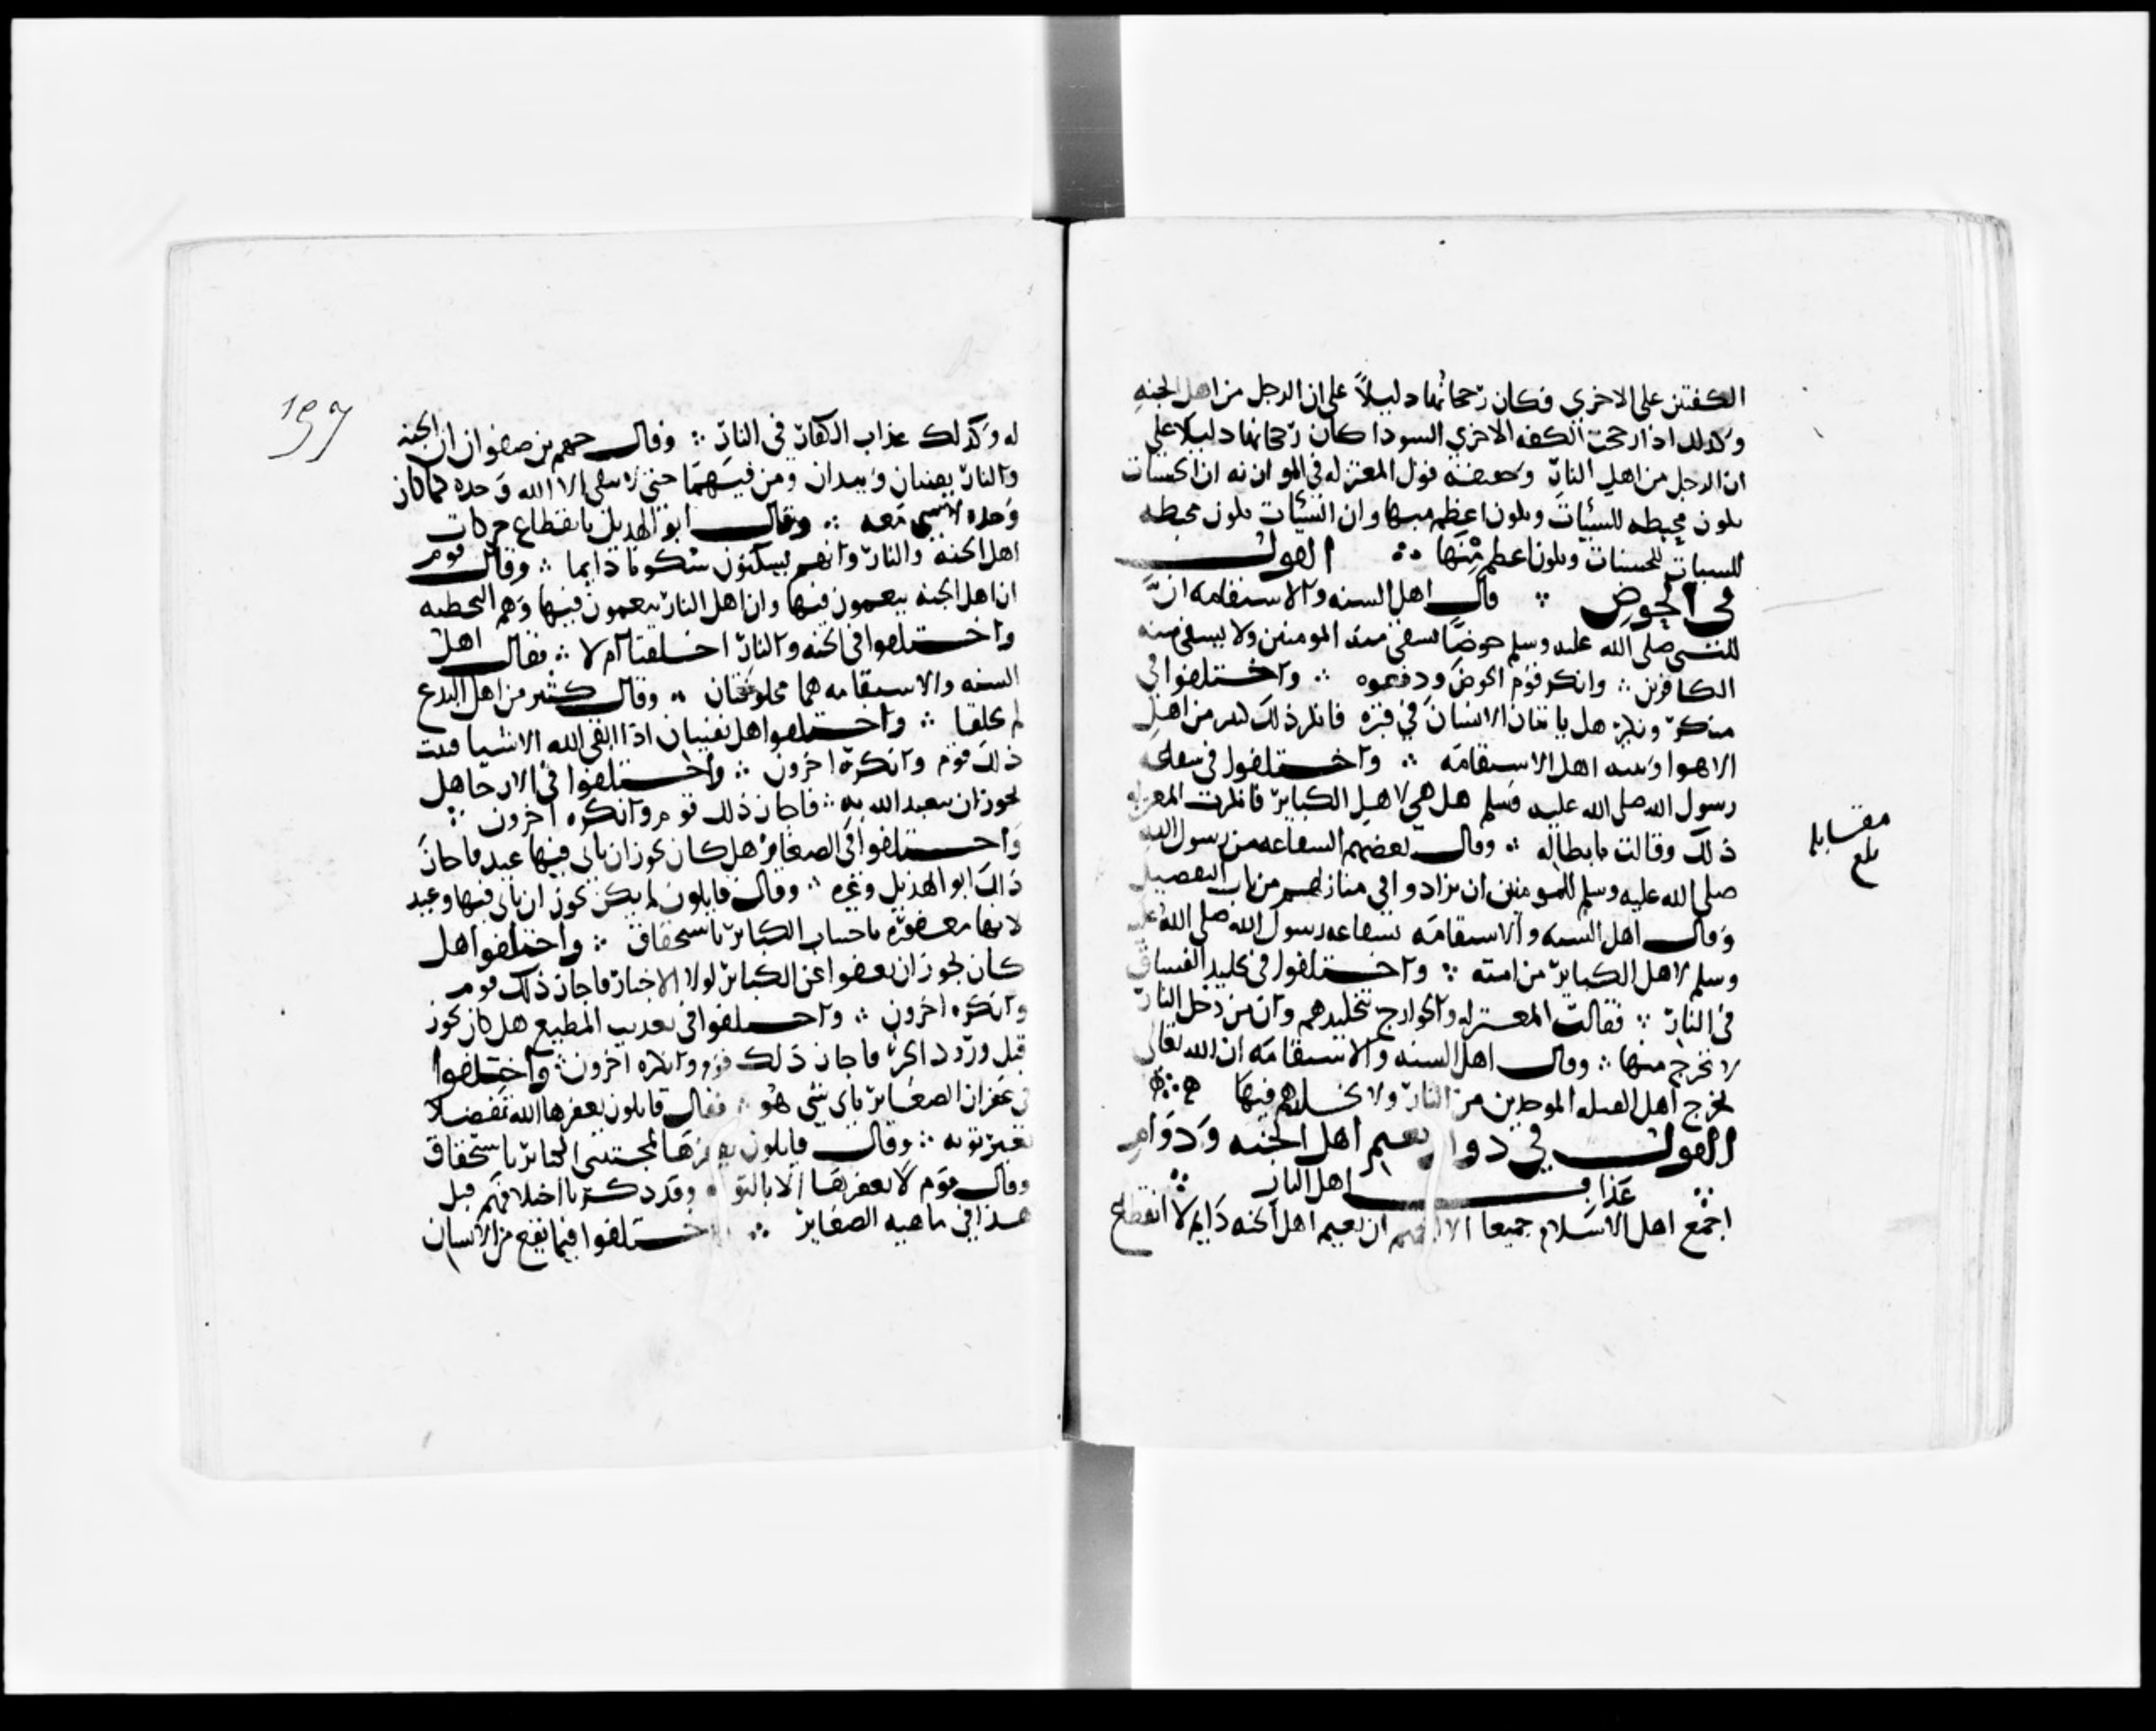 الكفتين على الاخرى فكان رجحانها دليلاً على ان الرجل من اهل الجنه
وكذلك اذا رجحت الكفه الاخرى السودا كان رجحانها دليلا على
ان الرجل من اهل النار وحقيقه قول المعتزله في الموازنه ان الحسنات
تكون محبطه للسيئات وتكون اعظم منها وان السيئات تكون محبطه
للحسنات وتكون اعظم منها ∴ القول
في الحوض ∴ قال اهل السنه والاستقامه ان
للنبي صلى الله عليه وسلم حوضا يسقى منه المومنين ولا يسقى منه
الكافرين ∴ وانكر قوم الحوض ودفعوه ∴ واختلفوا في
منكر ونكير هل ياتيان الانسان في قبره فانكر ذلك كثير من اهل
الاهوا وثبته اهل الاستقامه ∴ واختلفوا في شفاعه
رسول الله صلى الله عليه وسلم هل هي لاهل الكباير فانكرت المعتزله
ذلك وقالت بابطاله ∴ وقال بعضهم الشفاعه من رسول الله
صلى الله عليه وسلم للمومنين ان يزادوا في منازلهم من باب التفضيل
وقال اهل السنه والاستقامه بشفاعه رسول الله صلى الله عليه
وسلم لاهل الكباير من امته ∴ واختلفوا في تخليد الفساق
في النار ∴ فقالت المعتزله والخوارج بتخليدهم وان من دخل النار
لا يخرج منها ∴ وقال اهل السنه والاستقامه ان الله تعالى
يخرج اهل القبله الموحدين من النار ولا يخلدهم فيها
القول في دوام نعيم اهل الجنه ودوام
عذاب اهل النار
اجمع اهل الاسلام جميعا الا الجهم ان نعيم اهل الجنه دايم لا انقطاع
مقابله
بلغ
له وكذلك عذاب الكفار في النار ∴ وقال جهم بن صفوان ان الجنه
والنار يفنيان ويبيدان ومن فيهما حتى لا يبقى الا الله وحده كما كان
وحده لا شي معه ∴ وقال ابو الهذيل بانقطاع حركات
اهل الجنه والنار وانهم يسكنون سكونا دايما ∴ وقال قوم
ان اهل الجنه ينعمون فيها وان اهل النار ينعمون فيها وهم البطحيه
واختلفوا في الجنه والنار اخلقتا ام لا ∴ فقال اهل
السنه والاستقامه هما مخلوقتان ∴ وقال كثير من اهل البدع
لم تخلقا ∴ واختلفوا هل تفنيان اذا افنى الله الاشيا فثبت
ذلك قوم وانكره اخرون ∴ واختلفوا في الارجا هل
يجوز ان يتعبد الله به ∴ فاجاز ذلك قوم وانكره اخرون ∴
واختلفوا في الصغاير هل كان يجوز ان ياتى فيها وعيد فاجاز
ذلك ابو الهذيل وغيره ∴ وقال قايلون لم يكن يجوز ان ياتى فيها وعيد
لانها مغفوره باجتناب الكباير باستحقاق ∴ واختلفوا هل
كان يجوز ان يعفو عن الكباير لولا الاخبار فاجاز ذلك قوم
وانكره اخرون ∴ واختلفوا في تعذيب المطيع هل كان يجوز
قبل ورود الخبر فاجاز ذلك قوم وانكره اخرون ∴ واختلفوا
في غفران الصغاير باى شى هو ∴ فقال قايلون يغفرها الله تفضلا
بغير توبه ∴ وقال قايلون يغفرها لمجتنبى الكباير باستحقاق
وقال قوم لا يغفرها الا بالتوبه وقد ذكرنا اختلافهم قبل
هذا في ماهيه الصغاير ∴ واختلفوا فيما يقع من الانسان